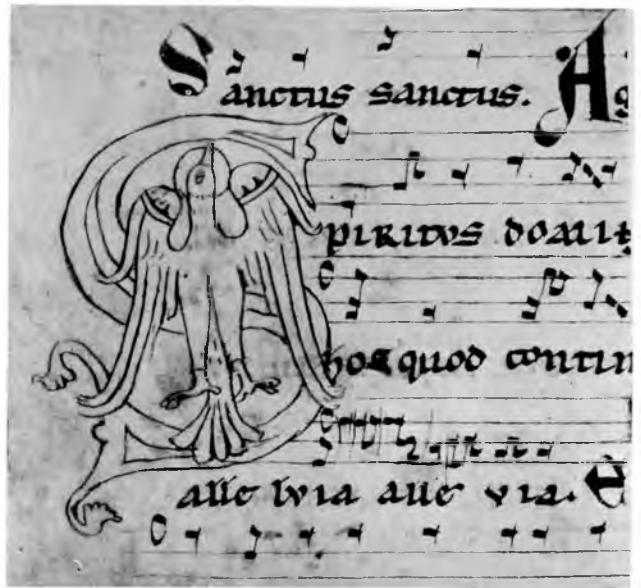 Sanctus sanctus. Ag
Spiritus domi
hoc quod contin
alle luia alle via. E